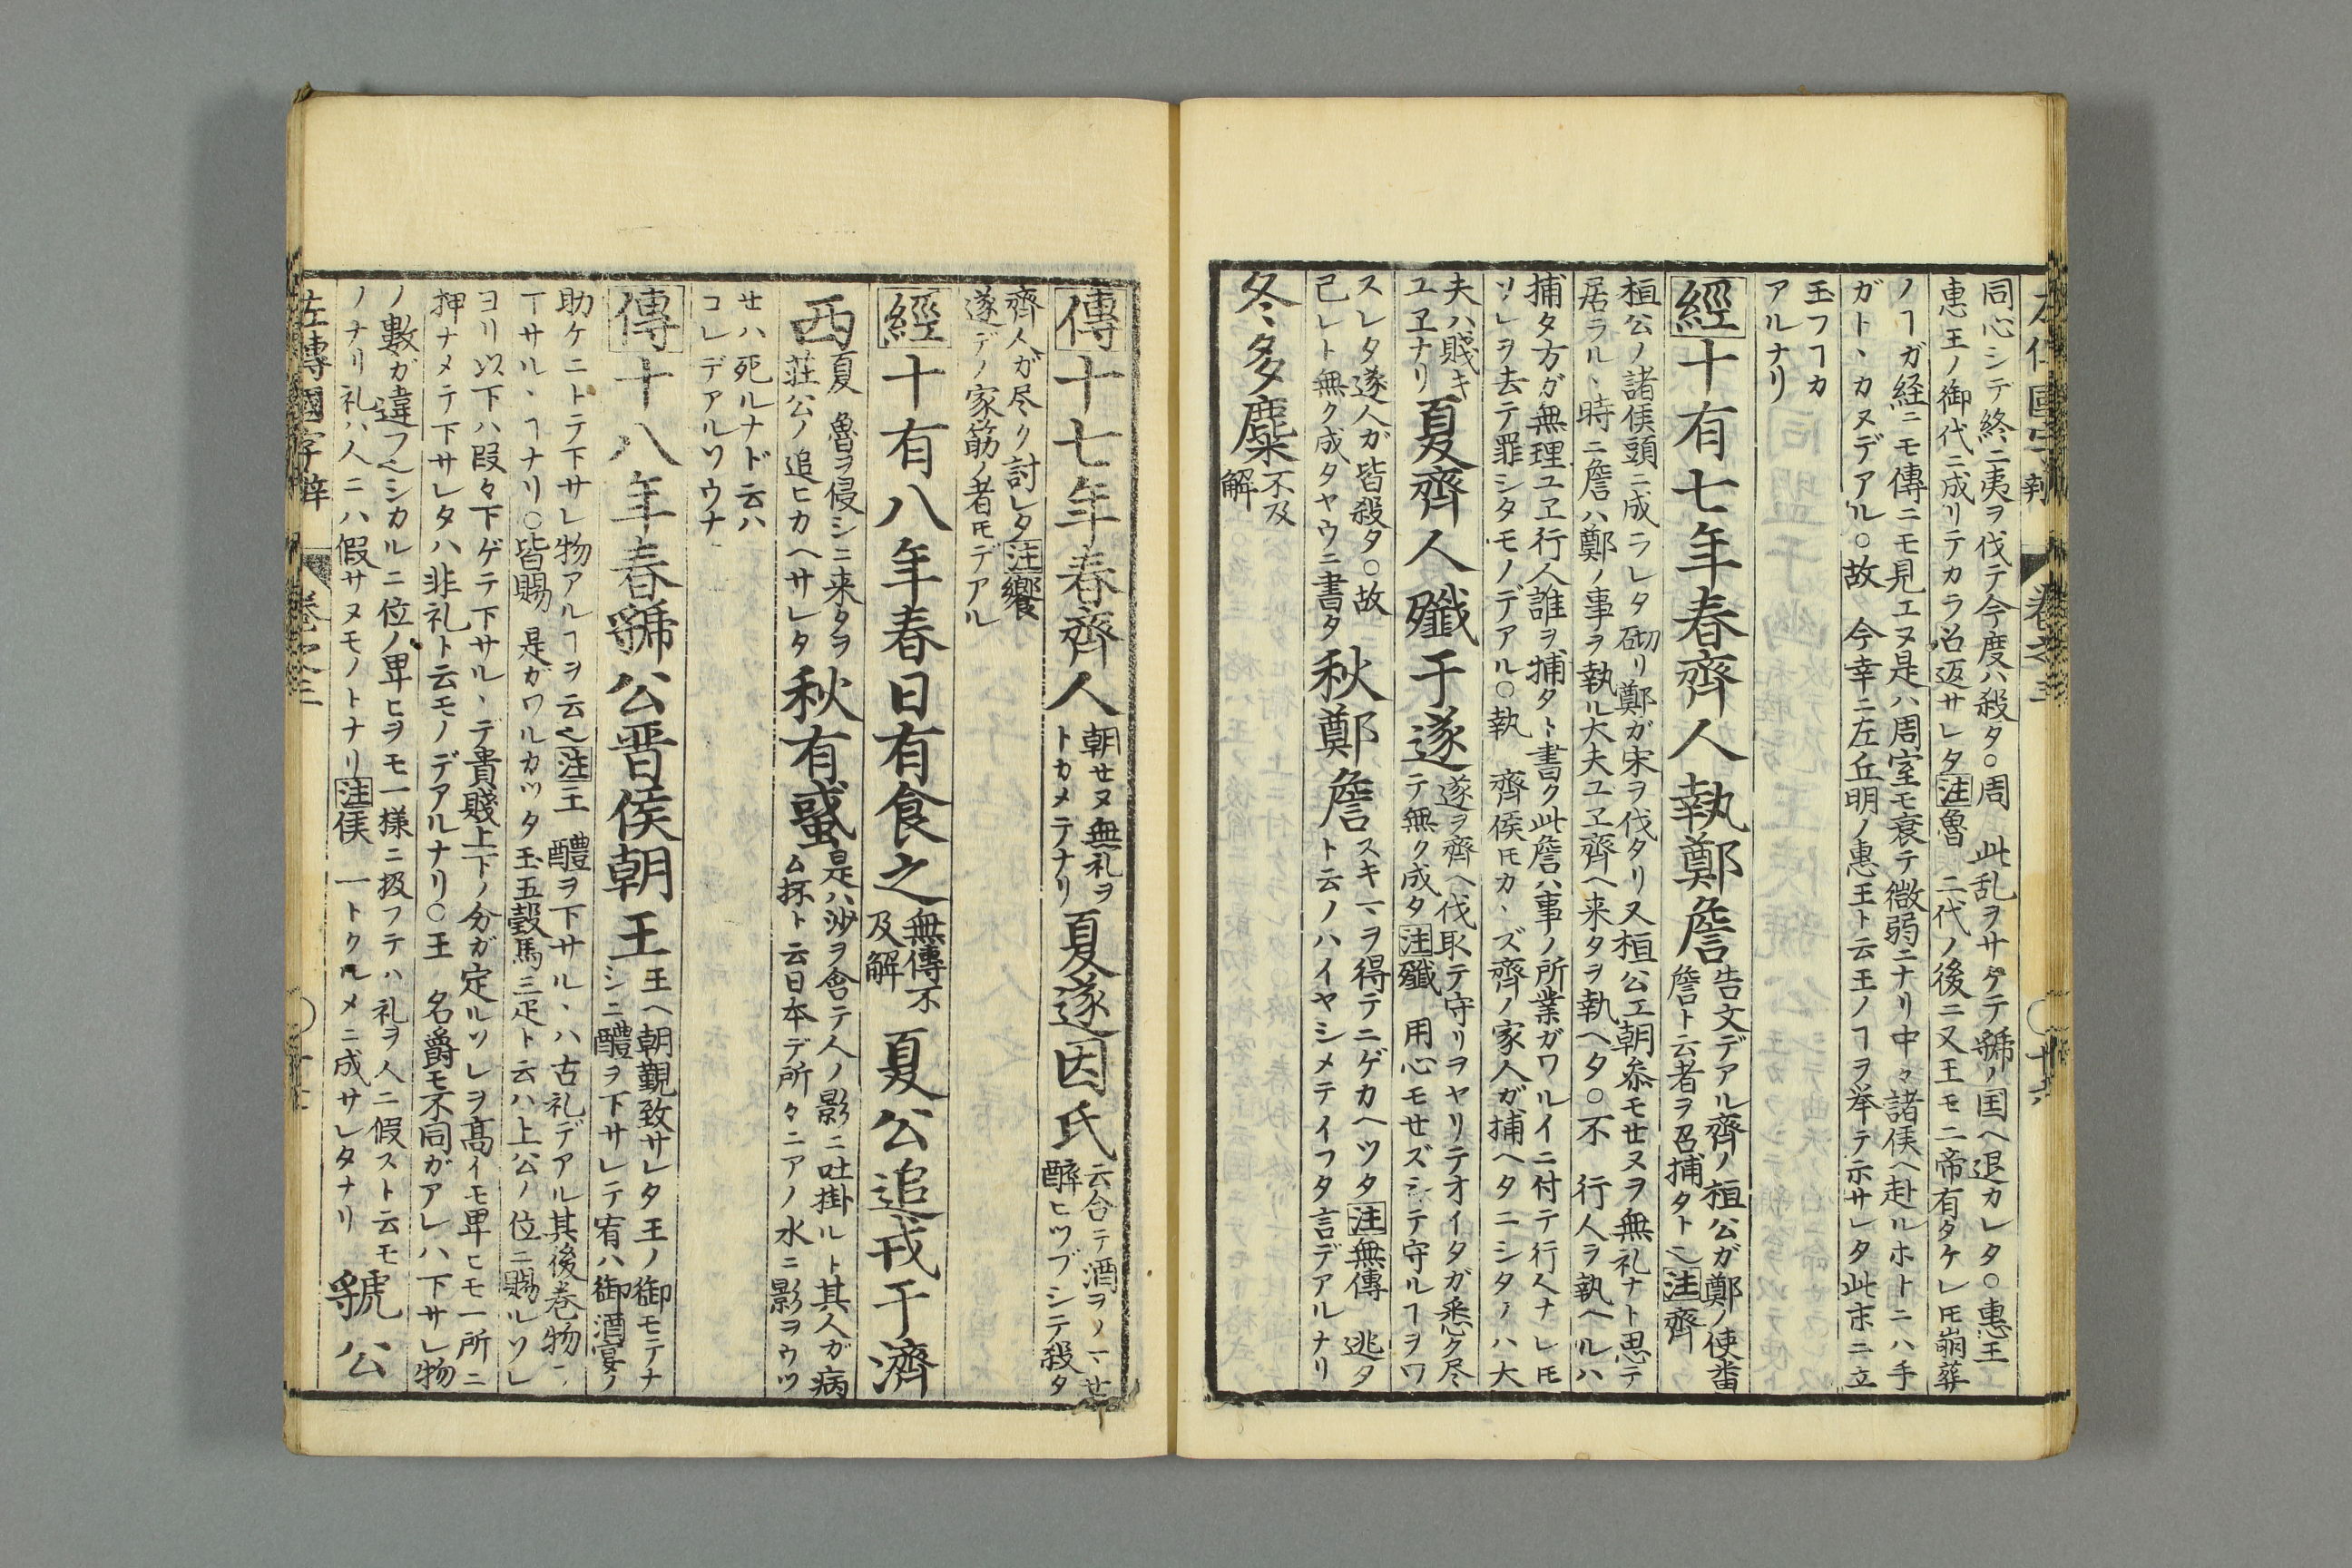 同心シテ終ニ夷ヲ伐テ今度ハ殺タ○周 此乱ヲサケテ虢ノ国ヘ退カレタ○惠王
惠王ノ御代ニ成リテカラ召返サレタ注魯 二代ノ後ニ又王モ二帝有タケレ𪜈崩葬
ノヿガ経ニモ傳ニモ見エヌ是ハ周室モ衰テ微弱ニナリ中々諸侯ヘ赴ルホトニハ手
ガトヽカヌデアル○故 今幸ニ左丘明ノ惠王ト云王ノヿヲ挙テ示サレタ此末ニ立
王フヿカ
アルナリ
經十有七年春齊人執鄭詹
告文デアル齊ノ桓公ガ鄭ノ使番
詹ト云者ヲ召捕タト也注齊
桓公ノ諸侯頭ニ成ラレタ砌リ鄭ガ宋ヲ伐タリ又桓公エ朝叅モセヌヲ無礼ナト思テ
居ラルヽ時ニ詹ハ鄭ノ事ヲ執ル大夫ユヱ齊ヘ来タヲ執ヘタ○不 行人ヲ執ヘルハ
捕タ方ガ無理ユヱ行人誰ヲ捕タト書ク此詹ハ事ノ所業ガワルイニ付テ行人ナレ𪜈
ソレヲ去テ罪シタモノデアル○執 齊侯𪜈カヽズ齊ノ家人ガ捕ヘタニシタノハ大
夫ハ賤キ
ユヱナリ
夏齊人殲于遂
遂ヲ齊ヘ伐取テ守リヲヤリテオイタガ悉ク尽
テ無ク成タ注殲 用心モセズシテ守ルヿヲワ
スレタ遂人ガ皆殺タ○故
己レト無ク成タヤウニ書タ
秋鄭詹
スキマヲ得テニゲカヘツタ注無傳 逃タ
ト云ノハイヤシメテイフタ言デアルナリ
冬多麋
不及
解
傳十七年春齊人
朝セヌ無礼ヲ
トカメテナリ
夏遂因氏
云合テ酒ヲノマせ
醉ヒツブシテ殺タ
齊人ガ尽ク討レタ注饗
遂デノ家筋ノ者𪜈デアル
經十有八年春日有食之
無傳不
及解
夏公追戎于濟
西
夏 魯ヲ侵シニ来タヲ
荘公ノ追ヒカヘサレタ
秋有蜮
是ハ沙ヲ含テ人ノ影ニ吐掛ルト其人ガ病
ム抔ト云日本デ所々ニアノ水ニ影ヲウツ
せハ死ルナド云ハ
コレデアルソウナ
傳十八年春虢公晋侯朝王
王ヘ朝覲致サレタ王ノ御モテナ
シニ醴ヲ下サレテ宥ハ御酒宴ノ
助ケニトテ下サレ物アルヿヲ云也注王 醴ヲ下サルヽハ古礼デアル其後巻物ニ
下サルヽヿナリ○皆賜 是ガワルカツタ玉五瑴馬三疋ト云ハ上公ノ位ニ賜ルソレ
ヨリ以下ハ段々下ゲテ下サルヽデ貴賤上下ノ分ガ定ルソレヲ髙イモ卑ヒモ一所ニ
押ナメテ下サレタハ非礼ト云モノデアルナリ○王 名爵モ不同ガアレハ下サレ物
ノ數ガ違フ也シカルニ位ノ卑ヒヲモ一様ニ扱フテハ礼ヲ人ニ假スト云モ
ノナリ礼ハ人ニハ假サヌモノトナリ注侯 一トクルメニ成サレタナリ
虢公
左傳國字辯 卷之三